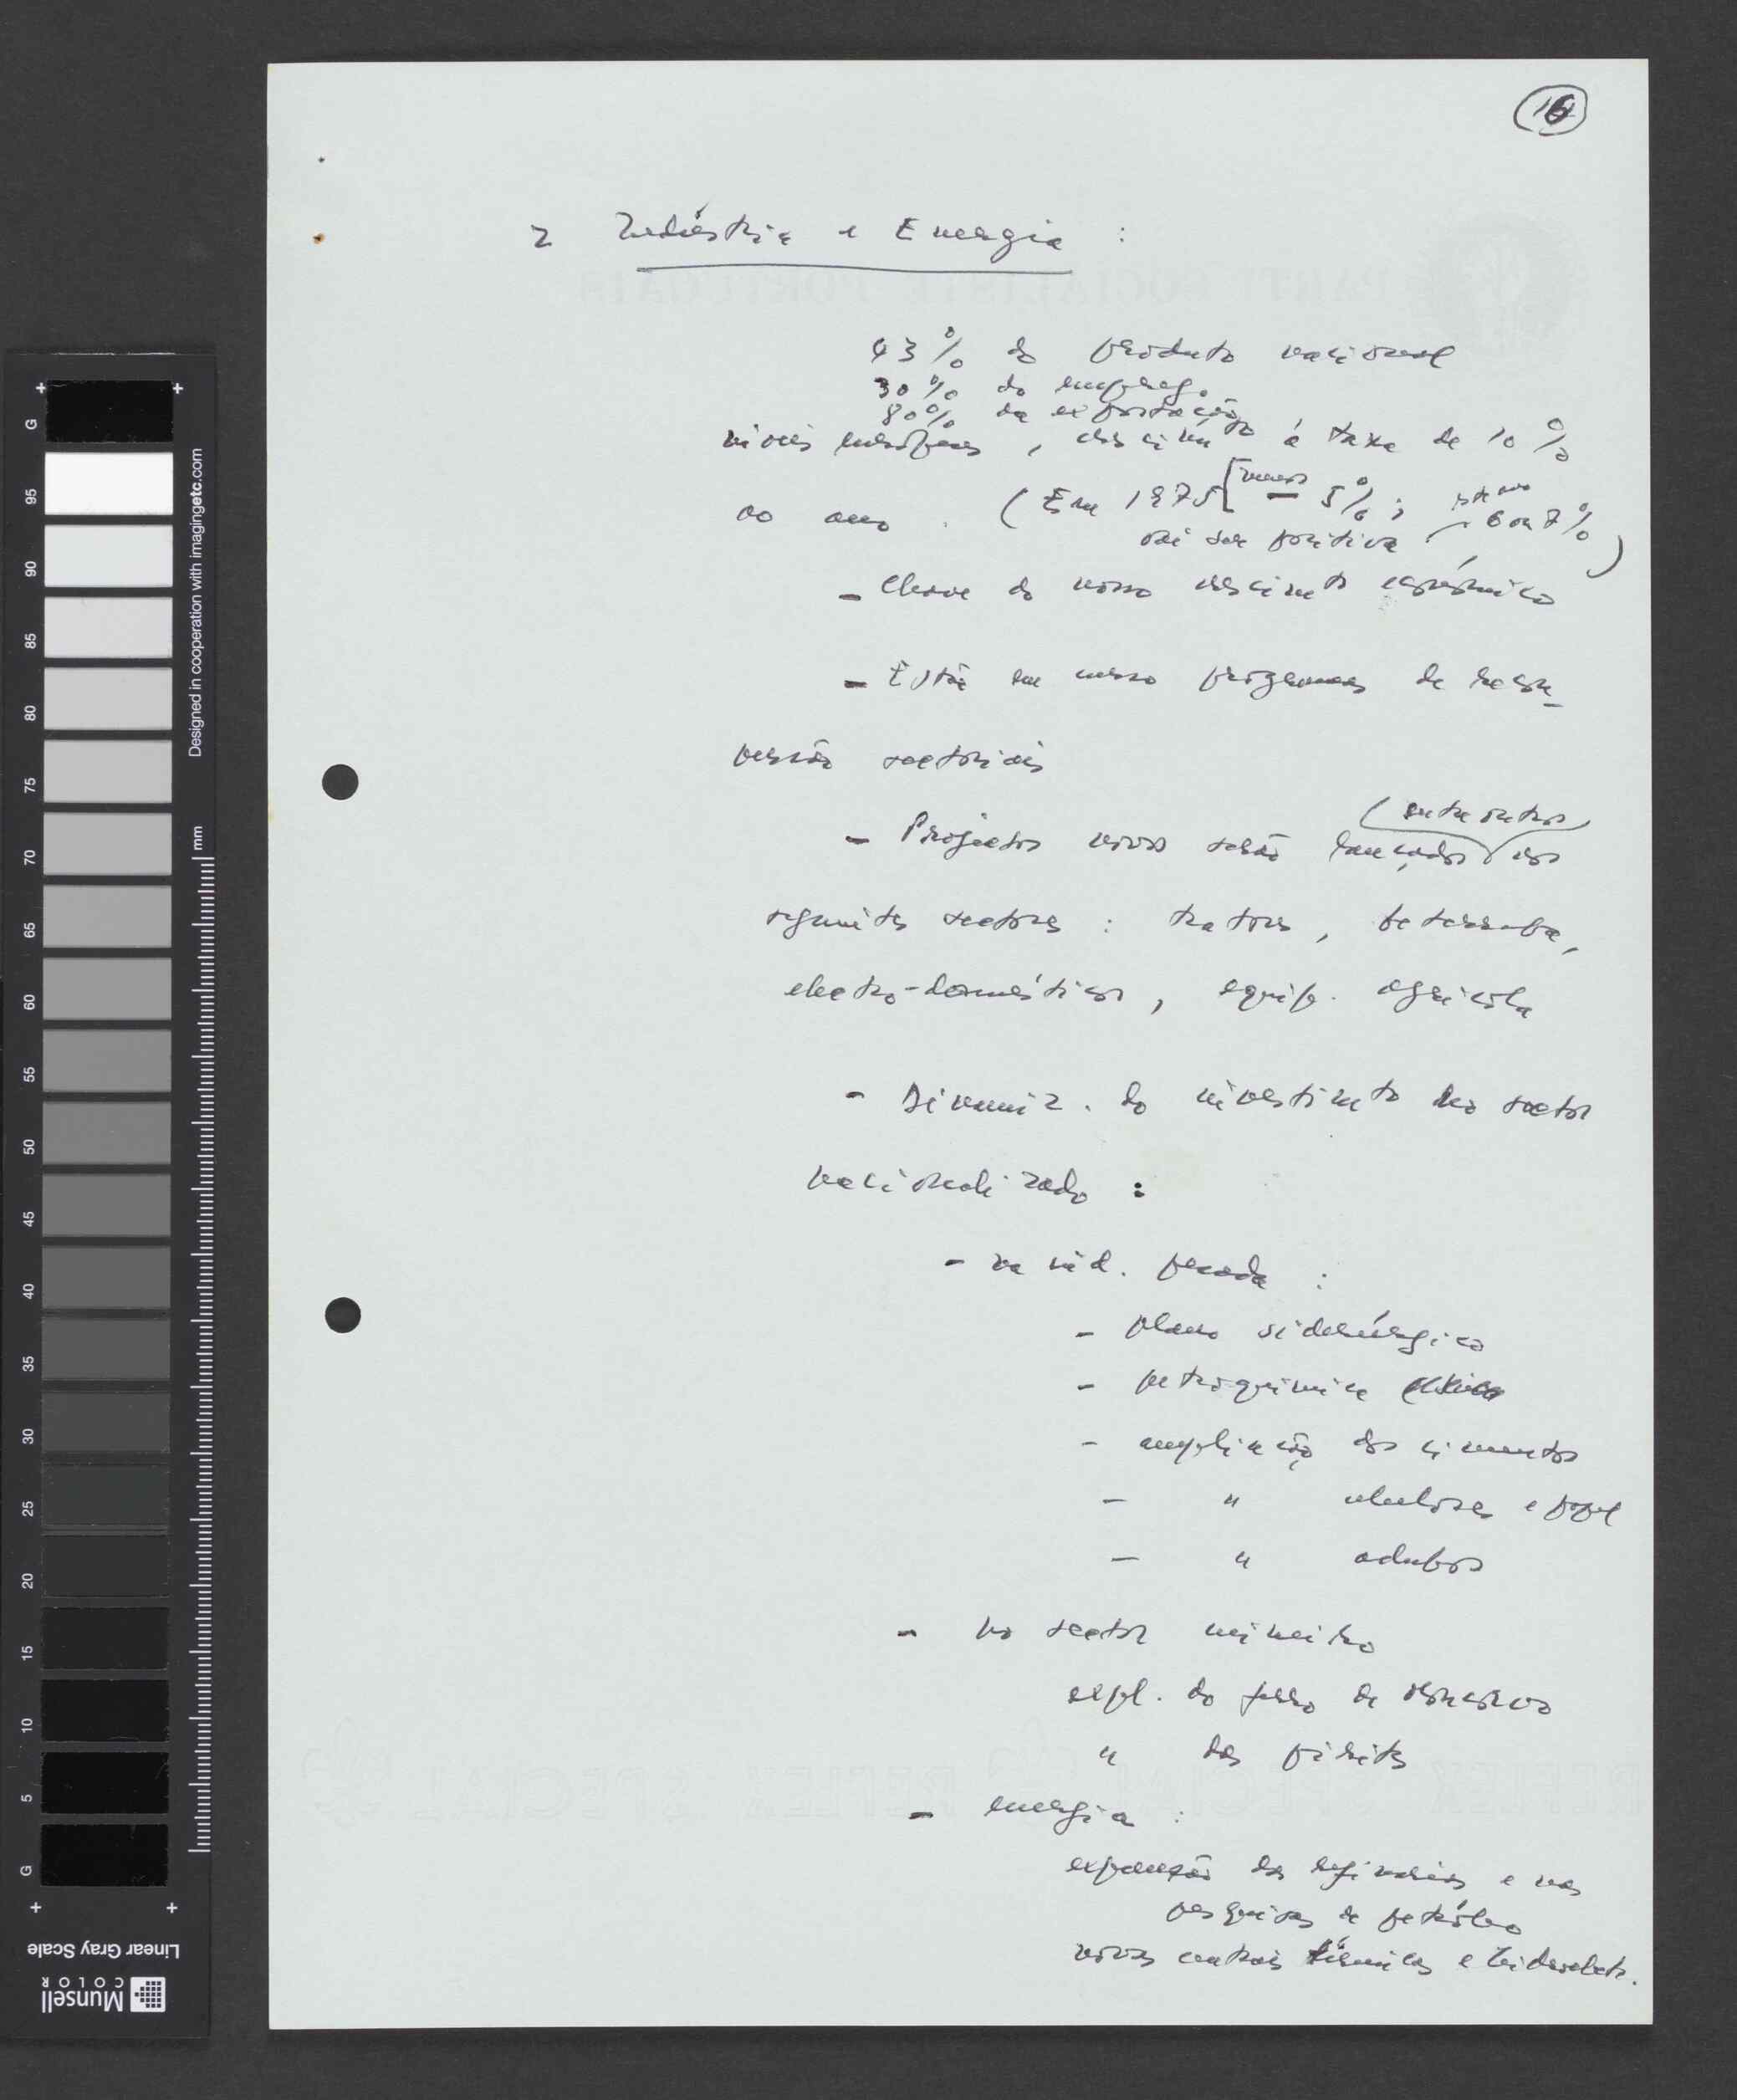 16
2 Indústria e Energia :
43% do produto nacional
30% do emprego
80% da exportação
níveis europeus, crescimto à taxa de 10%
ao ano. (Em 1975 [menos — 5%; este ano
vai ser positiva 6 ou 7%)
- Chave do nosso crescimto económico
- Estão em curso programas de recon-
versão sectoriais
(entre outros)
- Projectos novos serão lançados nos
seguintes sectores : tratores, beterraba,
electro-domésticos, equip. agrícola
- Dinamiz. do investimto no sector
nacionalizado :
- na ind. pesada :
- plano siderúrgico
- petroquímica
- ampliação dos cimentos
- " celuloses e papel
- " adubos
- no sector mineiro
expl. do ferro de Moncorvo
" das pirites
- energia :
expansão das refinarias e nas
pesquisas de petróleo
novas centrais térmicas e hidroelect.
PARTI SOCIALISTE PORTUGAIS
Designed in cooperation with imagingetc.com
mm
G
95
90
85
80
75
70
65
60
55
50
45
40
35
30
25
20
15
10
5
G
Linear Gray Scale
Munsell
COLOR